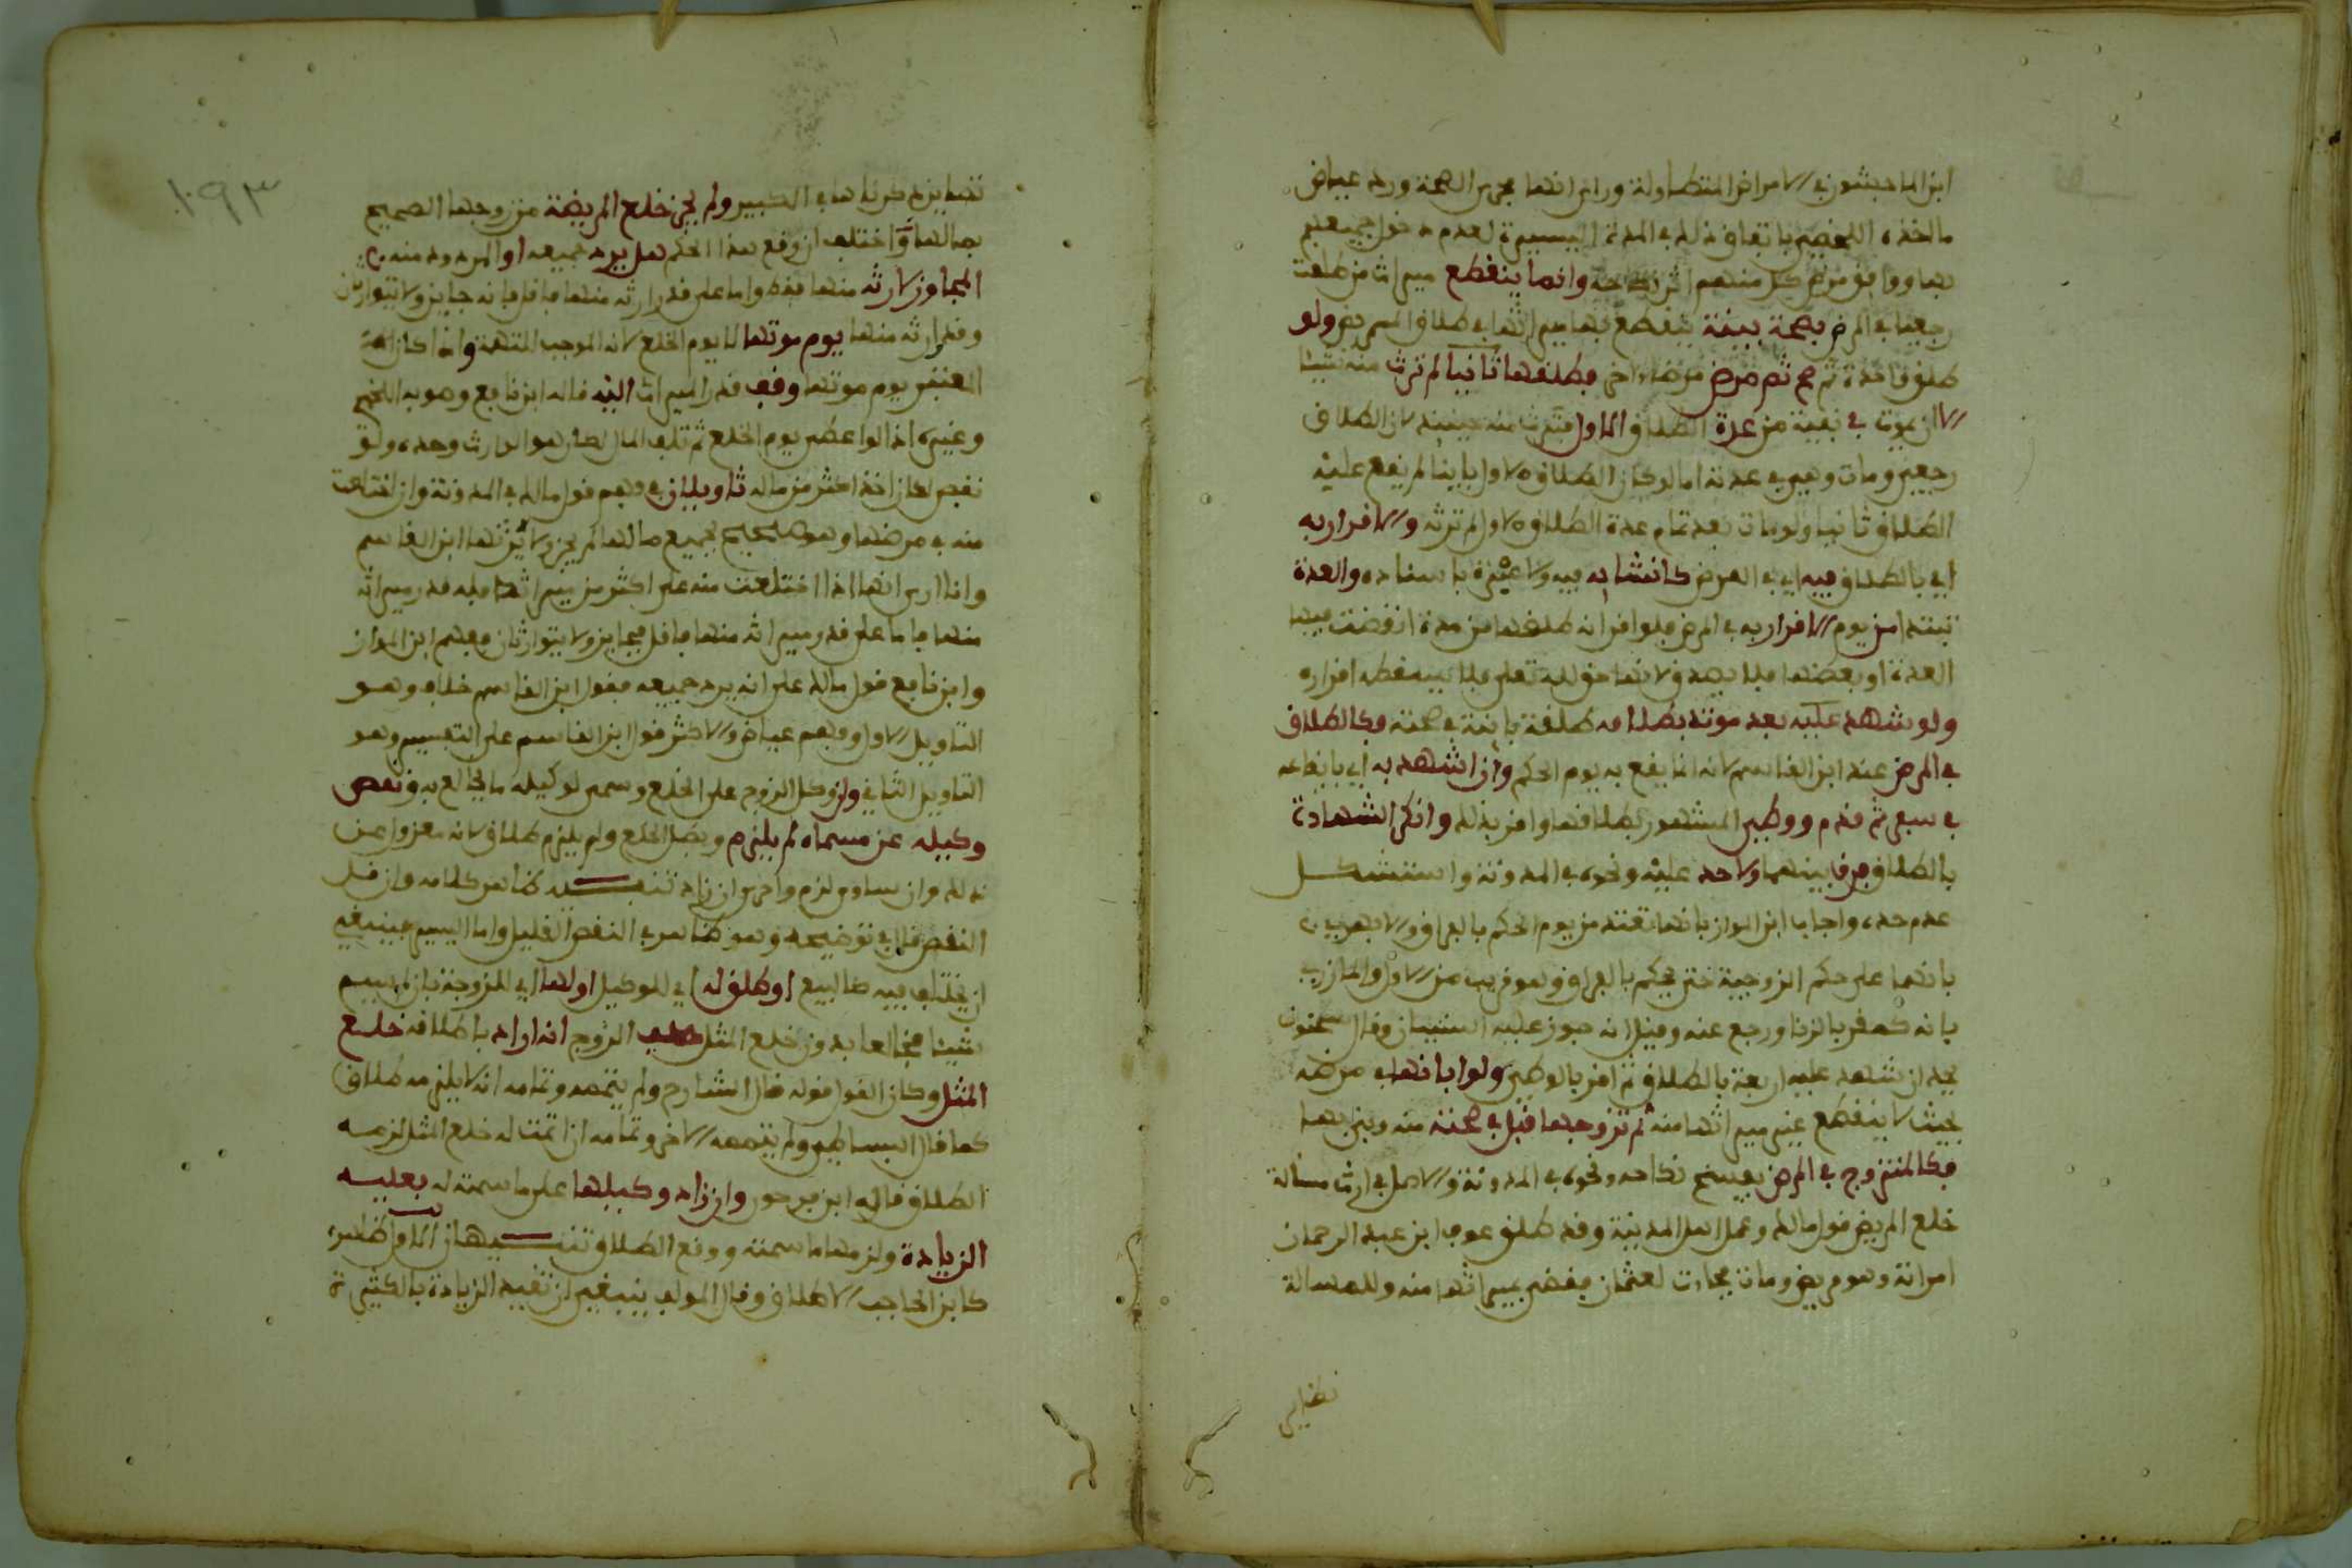 ابن الماجشون في الامراض المتطاولة ورأى انها مجرى الصحة ورد عياض
ما اخذه اللخمي باتفاق ذلك في المدة اليسيرة لعدم دخول جميعهم
بها ووافق مرض كل منهم وانما ينقطع ميراث من طلقت
رجعيا في المرض بصحة بينة ينقطع بها ميراثها في طلاق المريض ولو
طلق واحدة ثم صح ثم مرض مرضا اخر فطلقها ثانيا لم ترث منه شيئا
الا ان يموت في بقية من عدة الطلاق الاول فترث منه حينئذ لان الطلاق
رجعي ومات وهي في عدته اما لو كان الطلاق الاول باينا لم يقع عليه
الطلاق ثانيا ولو مات بعد تمام عدة الطلاق الاول لم ترثه والاقرار به
اي بالطلاق فيه اي في المرض كانشائه فيه ولا عبرة باسناده والعدة
تبتدا من يوم الاقرار به في المرض فلو اقر انه طلقها من مدة انقضت فيها
العدة او بعضها فلا يصدق لانها حق لله تعلى فلا يسقطه اقراره
ولو شهد عليه بعد موته بطلاقه طلقة باينة في صحته فكالطلاق
في المرض عند ابن القاسم لانه انما يقع به يوم الحكم وان اشهد به اي بايقاعه
في سفر ثم قدم ووطئ المشهود بطلاقها واقر بذلك وانكر الشهادة
بالطلاق فرق بينهما ولا حد عليه ونحوه في المدونة واستشكل
عدم حده واجاب ابن المواز بانها تعتد من يوم الحكم بالفراق والابهري
بانهما على حكم الزوجية حتى يحكم بالفراق وهو قريب من الاول والمازري
بانه كمقر بالزنا ورجع عنه وقيل انه جوز عليه النسيان وقال سحنون
يحد ان شهد عليه اربعة بالطلاق ثم اقر بالوطئ ولو ابانها في مرضه
بحيث لا ينقطع عنه ميراثها منه ثم تزوجها قبل صحته منه وبنى بها
فكالمتزوج في المرض يفسخ نكاحه ونحوه في المدونة والاصل في ارث مسألة
خلع المريض قول مالك وعمل اهل المدينة وقد طلق عوف ابن عبد الرحمان
امراته وهو مريض ومات فجاءت لعثمان فقضى بميراثها منه وللمسالة
نظاير
١٠٩٣
نظاير ذكرناها في الكبير ولم يجز خلع المريضة من زوجها الصحيح
بمالها واختلف ان وقع هذا الحكم هل يرد جميعه او المردود منه
المجاوز لارثه منها فقط واما على قدر ارثه منها فاقل فانه جايز ولا يتوارثان
وقدر ارثه منها يوم موتها لا يوم الخلع لانه الموجب للتهمة واذا كان
المعتبر يوم موتها وقف قدر الميراث اليه قاله ابن نافع وصوبه اللخمي
وغيره اذ لو اعطي يوم الخلع ثم تلف المال لكان هو الوارث وحده ولو
نقص لكان اخذ اكثر من ماله تاويلان في فهم قول مالك في المدونة وان اختلعت
منه في مرضها وهو صحيح بجميع مالها لم يجز ولا يرثها ابن القاسم
وانا ارى انها اذا اختلعت منه على اكثر من ميراثها فله قدر ميراثه
منها فاما على قدر ميراثه منها فاقل فجايز ولا يتوارثان ففهم ابن المواز
وابن نافع قول مالك على انه يرد جميعه فقول ابن القاسم خلاف وهو
التاويل الاول وفهم عياض والاكثر قول ابن القاسم على التفسير وهو
التاويل الثاني وان وكل الزوج على الخلع وسمى لوكيله ما يخالع به ونقص
وكيله عن مسماه لم يلزم وبطل الخلع ولم يلزم طلاق لانه معزول عن
ذلك وان ساوى لزم واحرى ان زاد تنبيه ظاهر كلامه وان قل
النقص قال في توضيحه وهو ظاهر في النقص القليل واما اليسير فينبغي
ان يختلف فيه كالبيع او اطلق له اي للوكيل او لها اي للزوجة بان لم يسم
شيئا فخالعا بدون خلع المثل حلف الزوج انه اراد باطلاقه خلع
المثل وكان القول قوله قال الشارح ولم يتممه وتمامه انه لا يلزمه طلاق
كما قال البساطي ولم يتممه الاخر وتمامه ان اتمت له خلع المثل لزمه
الطلاق قاله ابن فرحون وان زاد وكيلها على ما سمت له فعليه
الزيادة ولزمها ما سمته ووقع الطلاق تنبيهان الاول ظاهره
كابن الحاجب الاطلاق وقال المولف ينبغي ان تقيد الزيادة بالكثيرة